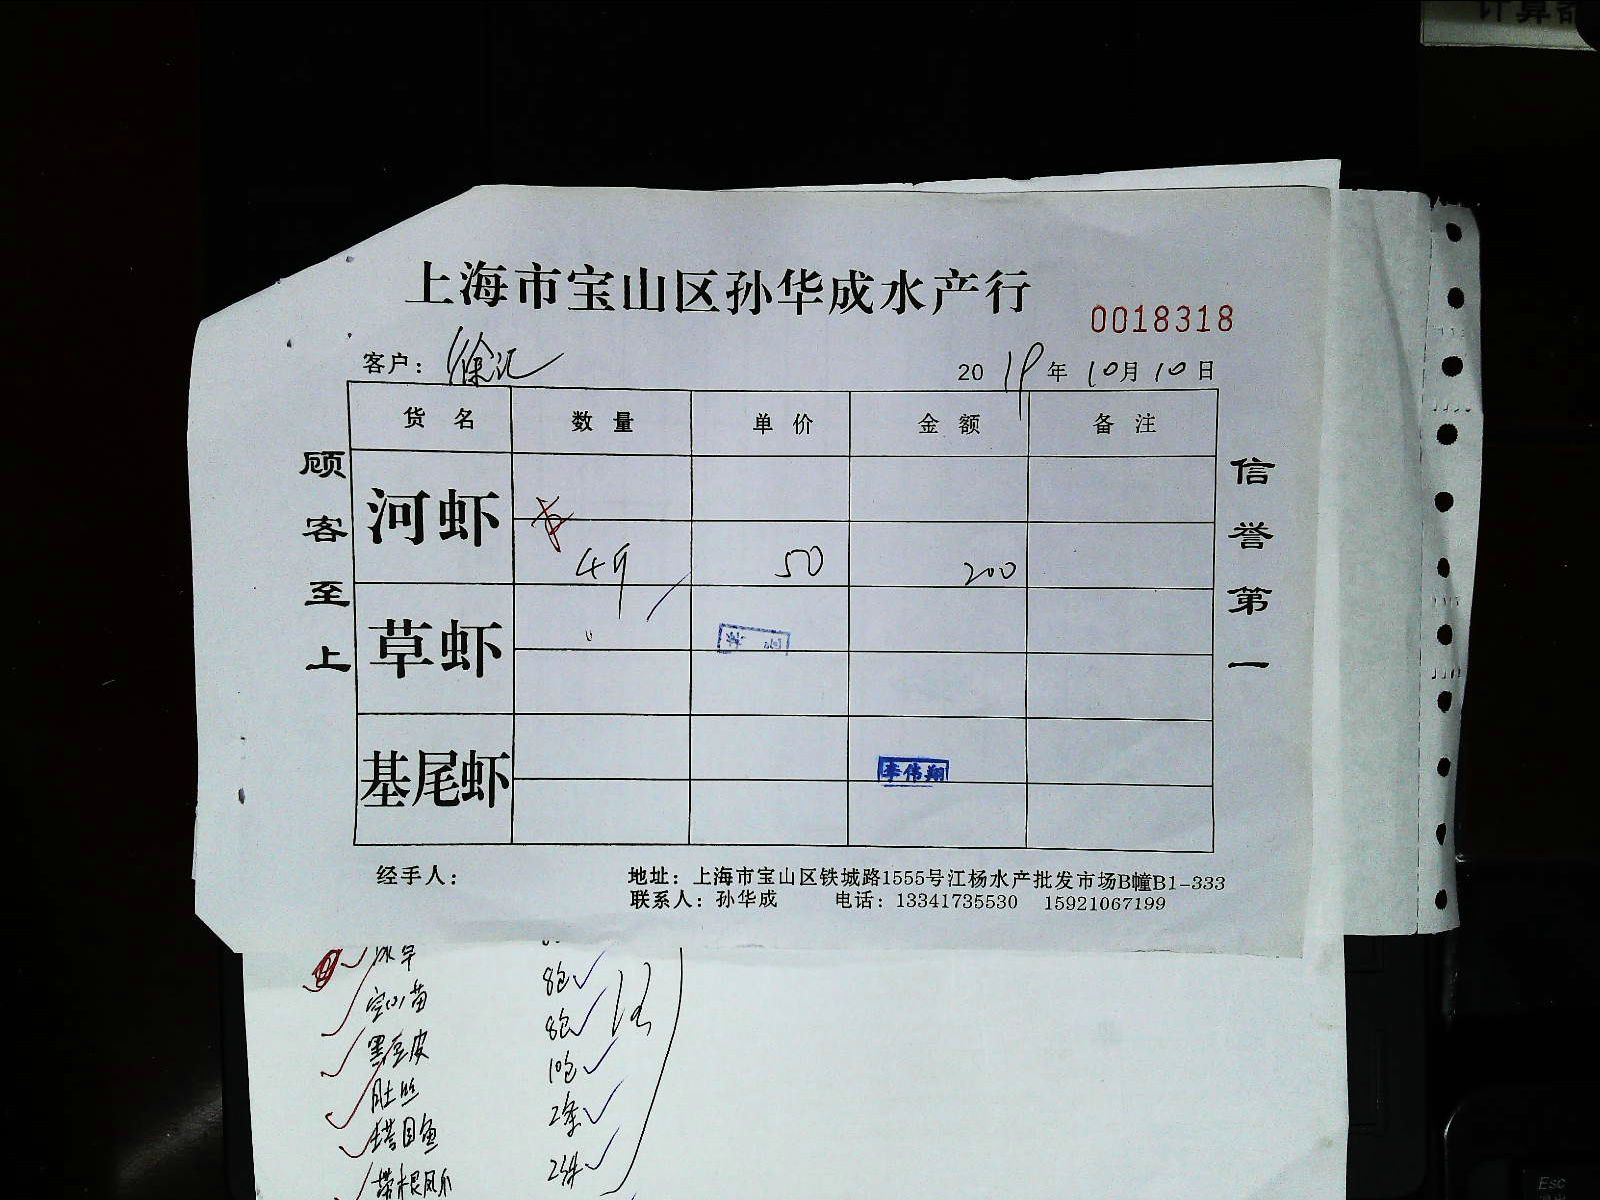 计算器
上海市宝山区孙华成水产行
0018318
客户：徐汇 2019年10月10日
货名 数量 单价 金额 备注
顾客至上
信誉第一
河虾
4斤 50 200
草虾
基尾虾
李伟翔
经手人： 地址：上海市宝山区铁城路1555号江杨水产批发市场B幢B1-333
联系人：孙华成 电话：13341735530 15921067199
8包
空心苗 8包
黑豆皮 10包
肚丝 2条
塔目鱼 2条
Esc